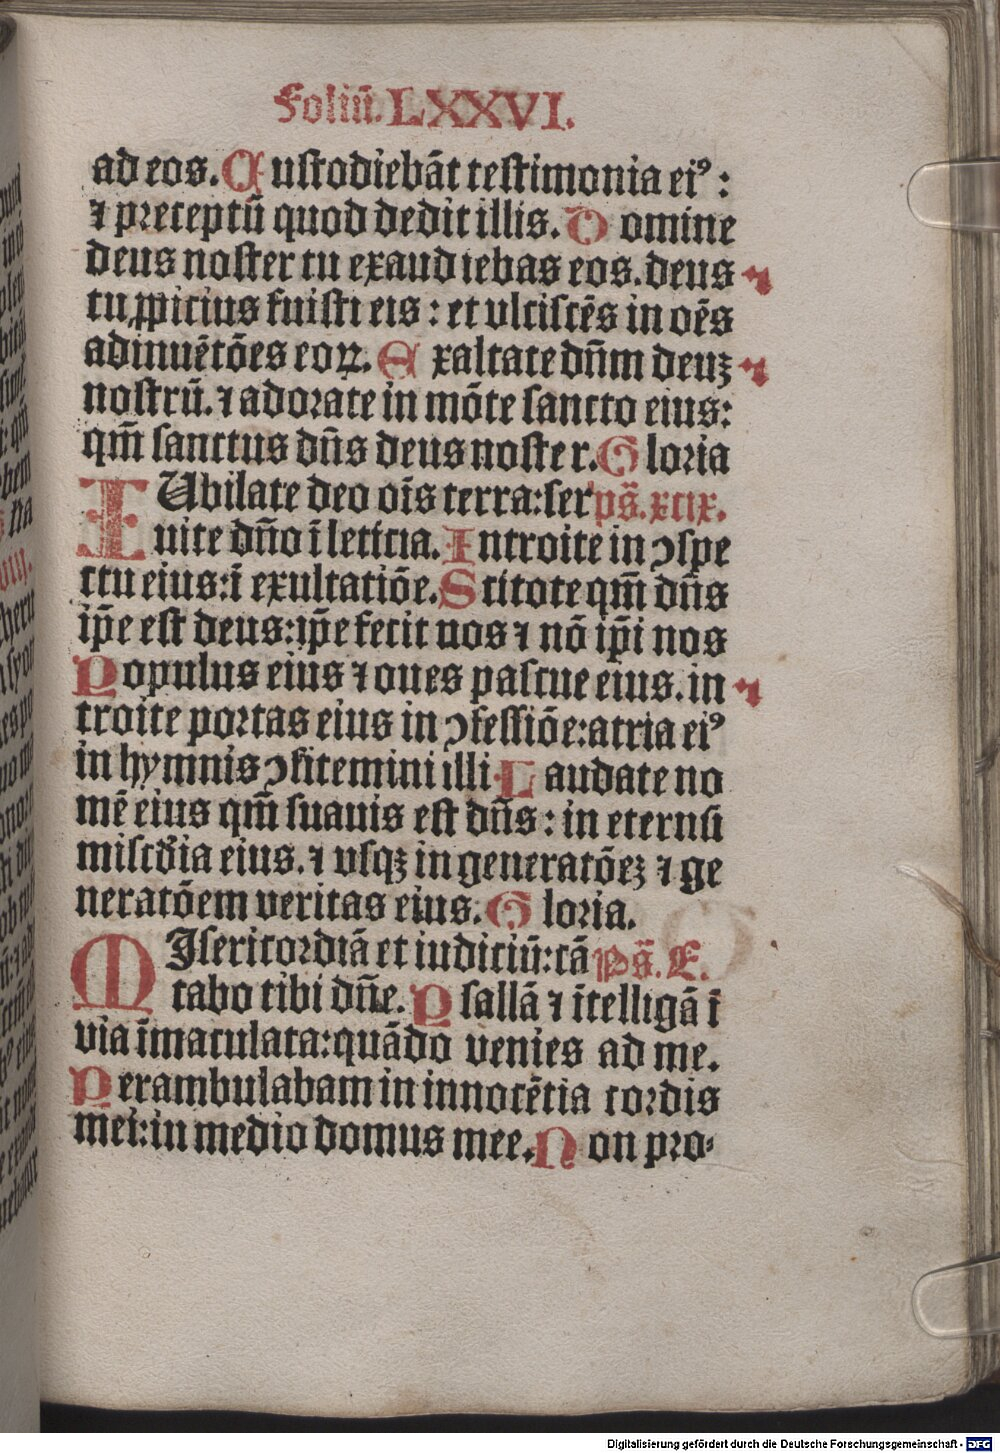 Foliū. LXXVI.
ad eos. Custodiebāt testimonia eiꝰ :
⁊ preceptū quod dedit illis. Domine
deus noster tu exaudiebas eos. deus
tu ꝓpicius fuisti eis : et vlciscēs in oēs
adinuētōes eoꝝ. Exaltate dn̄m deuꝫ
nostrū. ⁊ adorate in mōte sancto eius:
qm̄ sanctus dn̄s deus noster. Gloria
IUbilate deo oīs terra: ser ps̄. xcix.
uite dn̄o ī leticia. Introite in ↄspe
ctu eius: ī exultatiōe. Scitote qm̄ dn̄s
ip̄e est deus: ip̄e fecit nos ⁊ nō ip̄i nos
Populus eius ⁊ oues pascue eius. in
troite portas eius in ↄfessiōe: atria eiꝰ
in hymnis ↄfitemini illi. Laudate no
mē eius qm̄ suauis est dn̄s : in eternū
misc̄dia eius. ⁊ vsqꝫ in generatōeꝫ ⁊ ge
neratōem veritas eius. Gloria.
MIsericordiā et iudiciū: cā Ps̄. C.
tabo tibi dn̄e. Psallā ⁊ ītelligā ī
via īmaculata: quādo venies ad me.
Perambulabam in innocētia cordis
mei: in medio domus mee. Non pro⸗
Digitalisierung gefördert durch die Deutsche Forschungsgemeinschaft - DFG